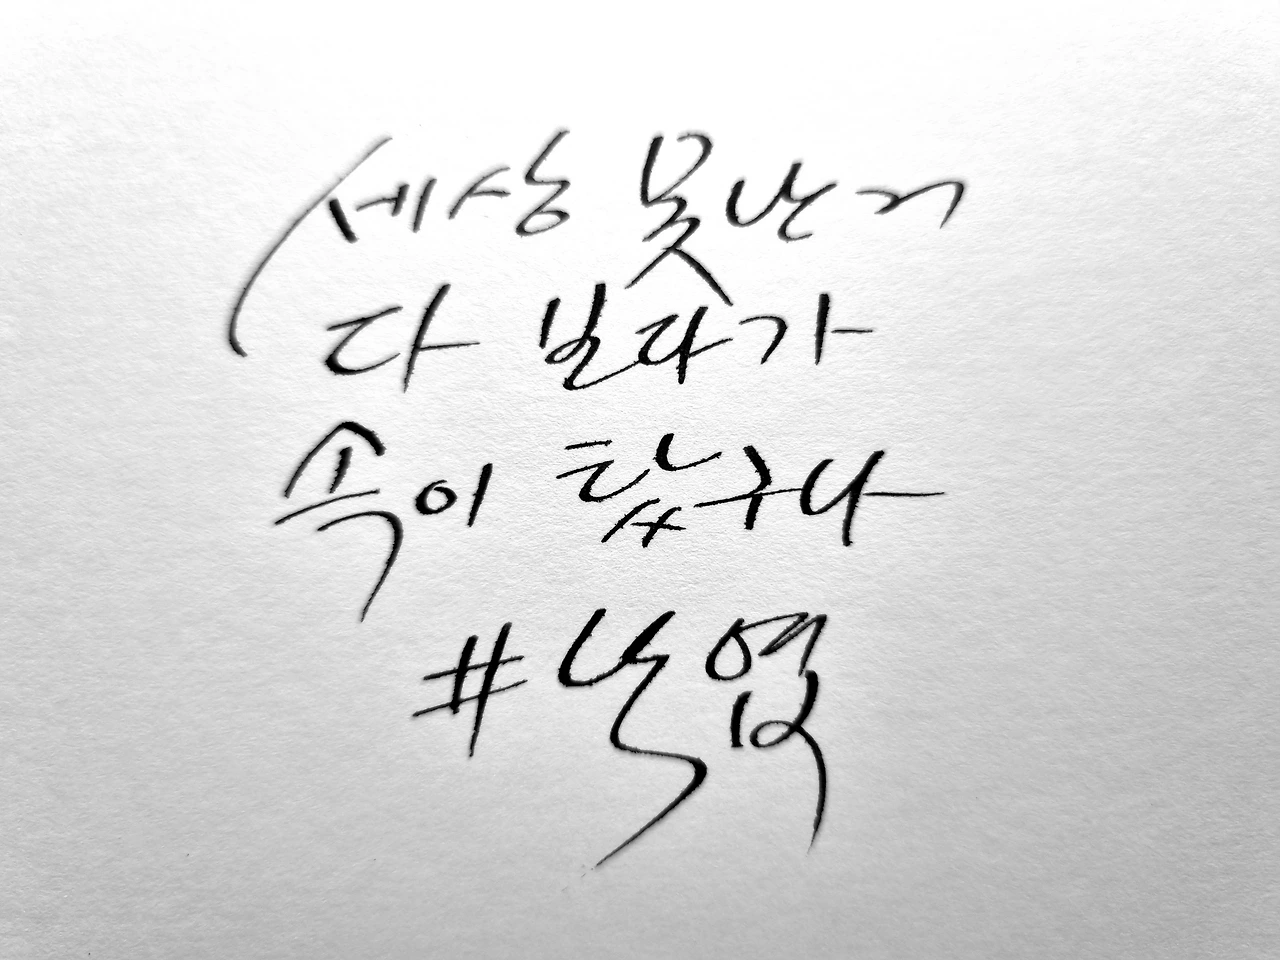 세상 못난거
다 보다가
속이 탔구나
#낙엽